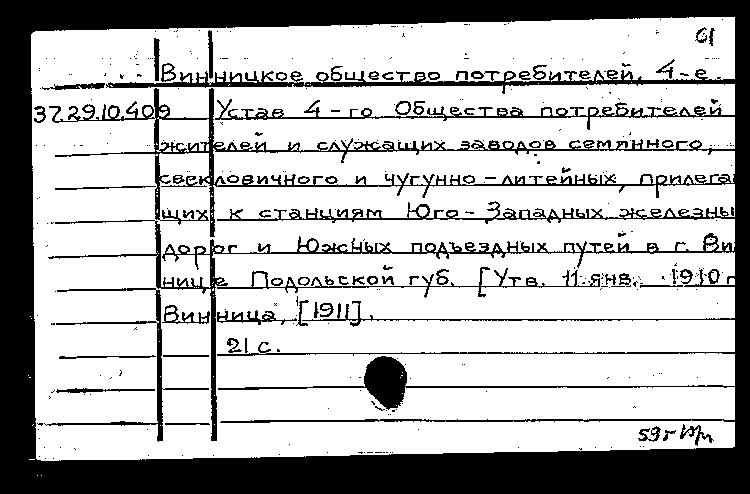 61
Винницкое общество потребителей, 4-е.
37.29.10.409 Устав 4-го Общества потребителей
жителей и служащих заводов семянного,
свекловичного и чугунно-литейных, прилега
щих к станциям Юго-Западных железны
дорог и Южных подъездных путей в г. Ви
нице Подольской губ. [Утв. 11 янв. 1910 г
Винница, [1911].
21 с.
59г